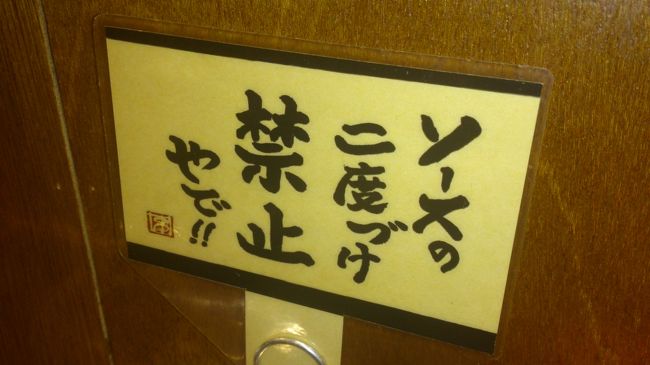 ソースの
二度づけ
禁止
やで!!